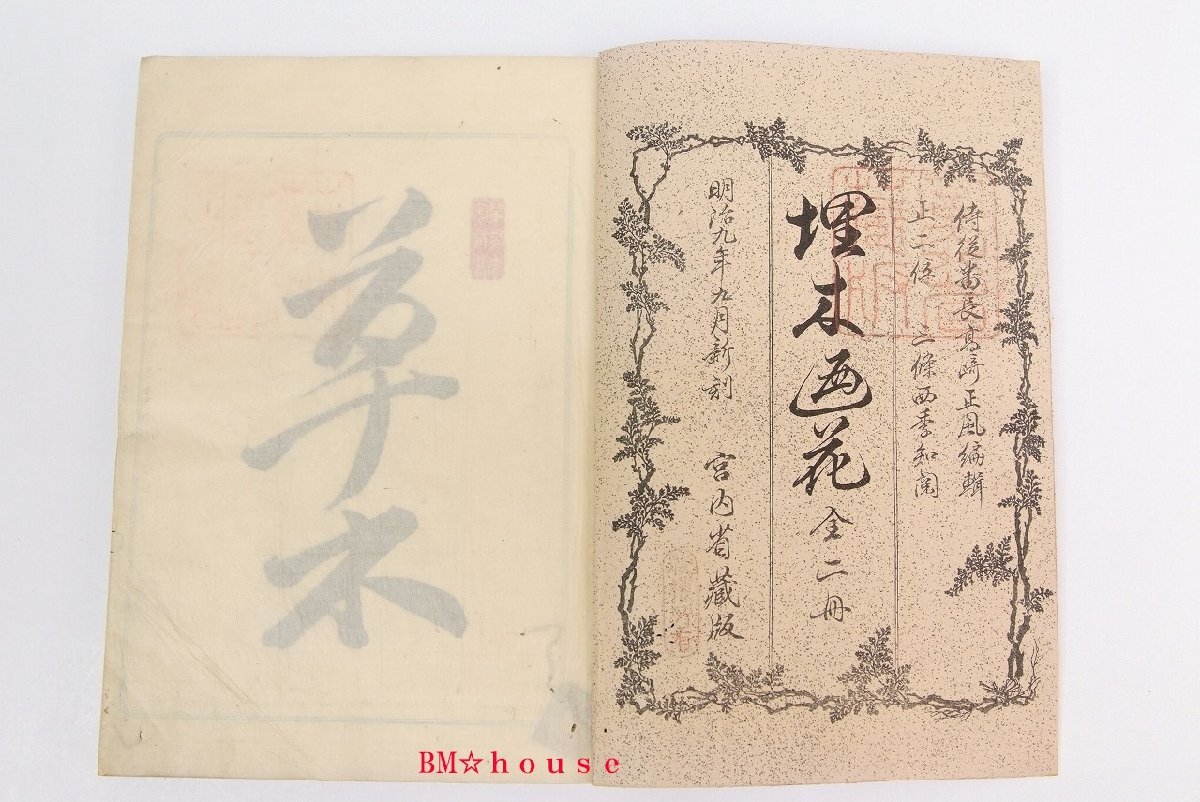 侍従番長高崎正風編輯
正二位 三條西季知閲
埋木廼花 全二冊
明治九年九月新刻 宮内省蔵版
草木
BM☆house